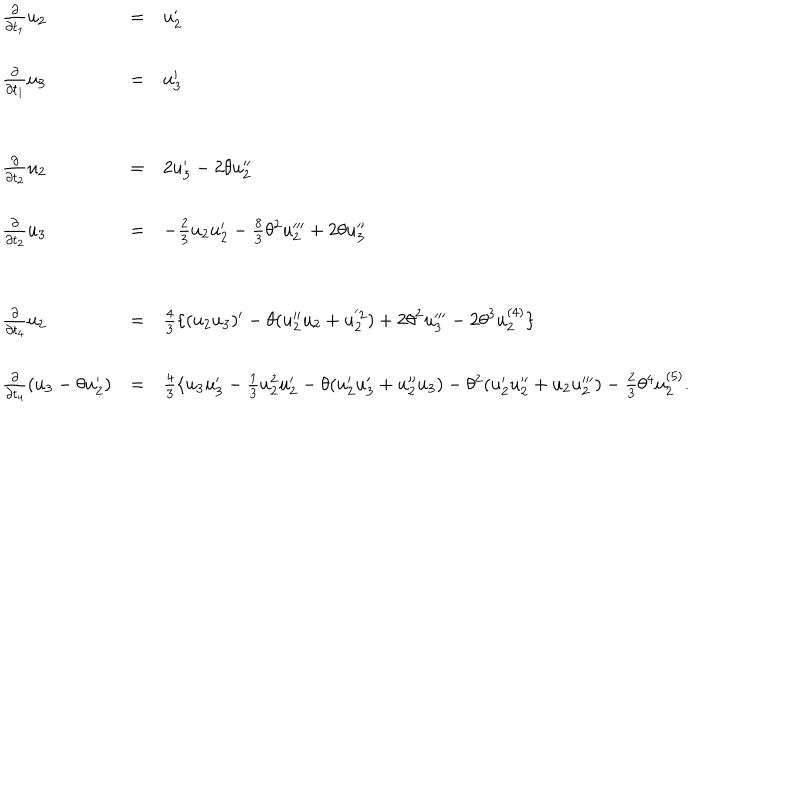 \frac{\partial}{\partial t_1} u_2 = u_2'
\frac{\partial}{\partial t_1} u_3 = u_3'
\frac{\partial}{\partial t_2} u_2 = 2u_3' - 2\theta u_2''
\frac{\partial}{\partial t_2} u_3 = -\frac{2}{3} u_2 u_2' - \frac{8}{3} \theta^2 u_2''' + 2\theta u_3''
\frac{\partial}{\partial t_4} u_2 = \frac{4}{3} \{ (u_2 u_3)' - \theta (u_2'' u_2 + u_2'^2) + 2\theta^2 u_3''' - 2\theta^3 u_2^{(4)} \}
\frac{\partial}{\partial t_4} (u_3 - \theta u_2') = \frac{4}{3} \{ u_3 u_3' - \frac{1}{3} u_2^2 u_2' - \theta (u_2' u_3' + u_2'' u_3) - \theta^2 (u_2' u_2'' + u_2 u_2''') - \frac{2}{3} \theta^4 u_2^{(5)}.